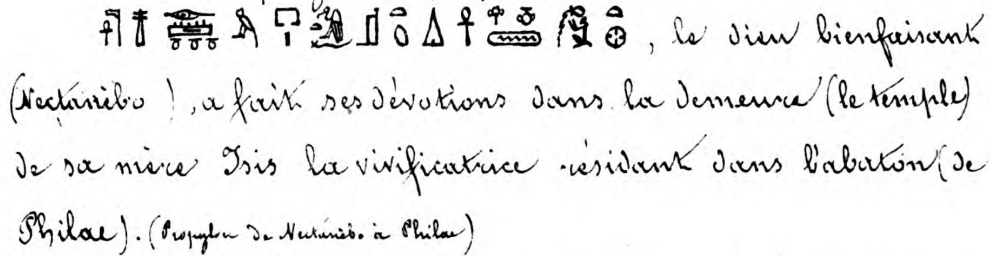 , le dieu bienfaisant
(Nectanèbo), a fait ses dévotions dans la demeure (le temple)
de sa mère Isis la vivificatrice résidant dans l'abaton (de
Philae). (Propylon de Nectanèbo à Philae)